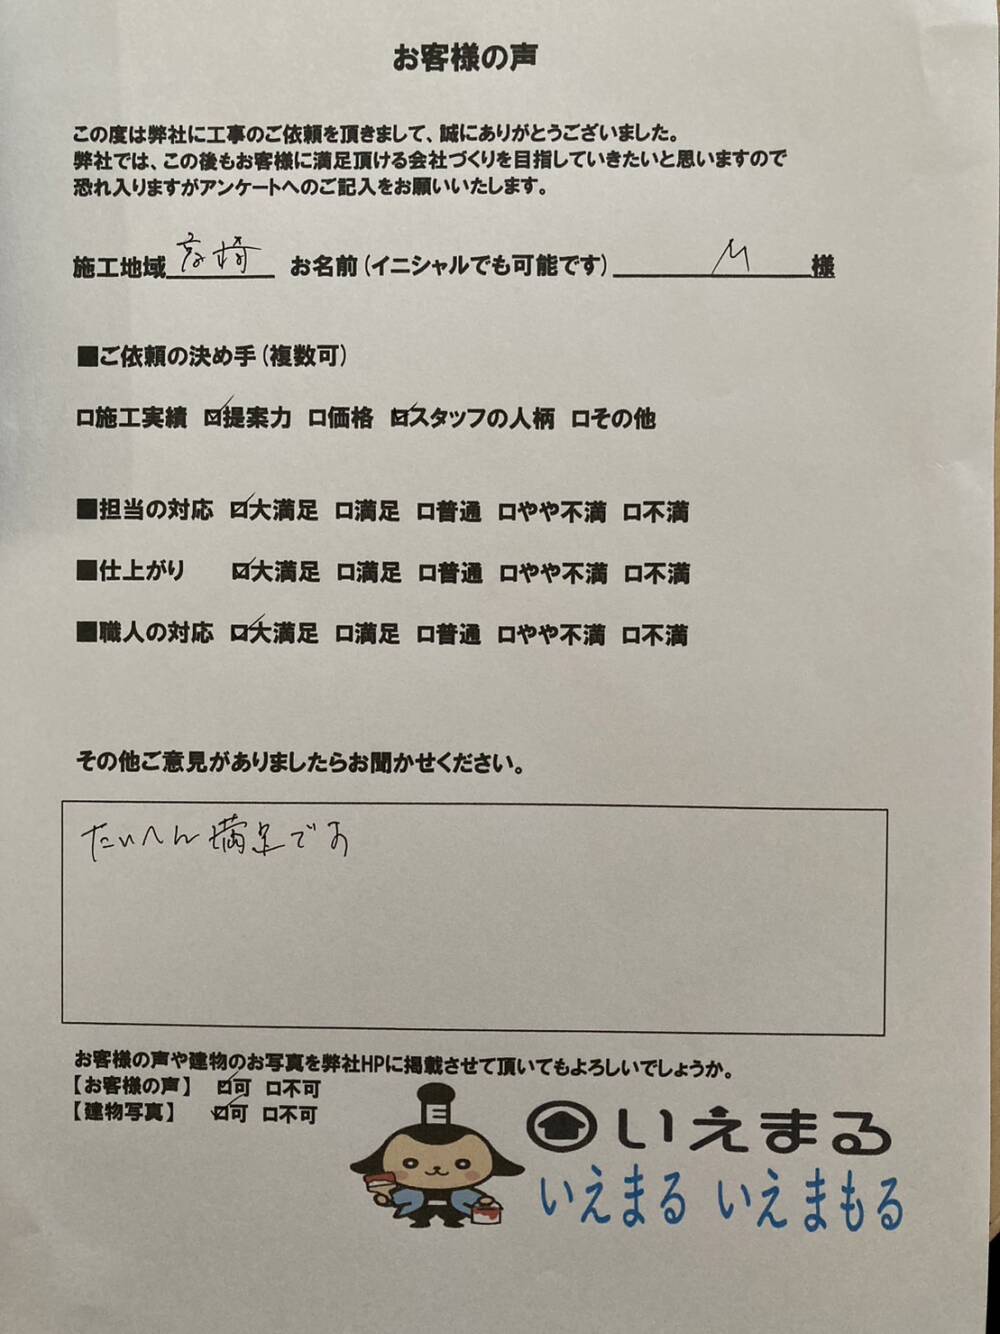 お客様の声
この度は弊社に工事のご依頼を頂きまして、誠にありがとうございました。
弊社では、この後もお客様に満足頂ける会社づくりを目指していきたいと思いますので
恐れ入りますがアンケートへのご記入をお願いいたします。
施工地域 お名前(イニシャルでも可能です) M 様
■ご依頼の決め手(複数可)
□施工実績 ☑提案力 □価格 ☑スタッフの人柄 □その他
■担当の対応 ☑大満足 □満足 □普通 □やや不満 □不満
■仕上がり ☑大満足 □満足 □普通 □やや不満 □不満
■職人の対応 ☑大満足 □満足 □普通 □やや不満 □不満
その他ご意見がありましたらお聞かせください。
たいへん満足です
お客様の声や建物のお写真を弊社HPに掲載させて頂いてもよろしいでしょうか。
【お客様の声】 ☑可 □不可
【建物写真】 ☑可 □不可
E
いえまる
いえまる いえまもる